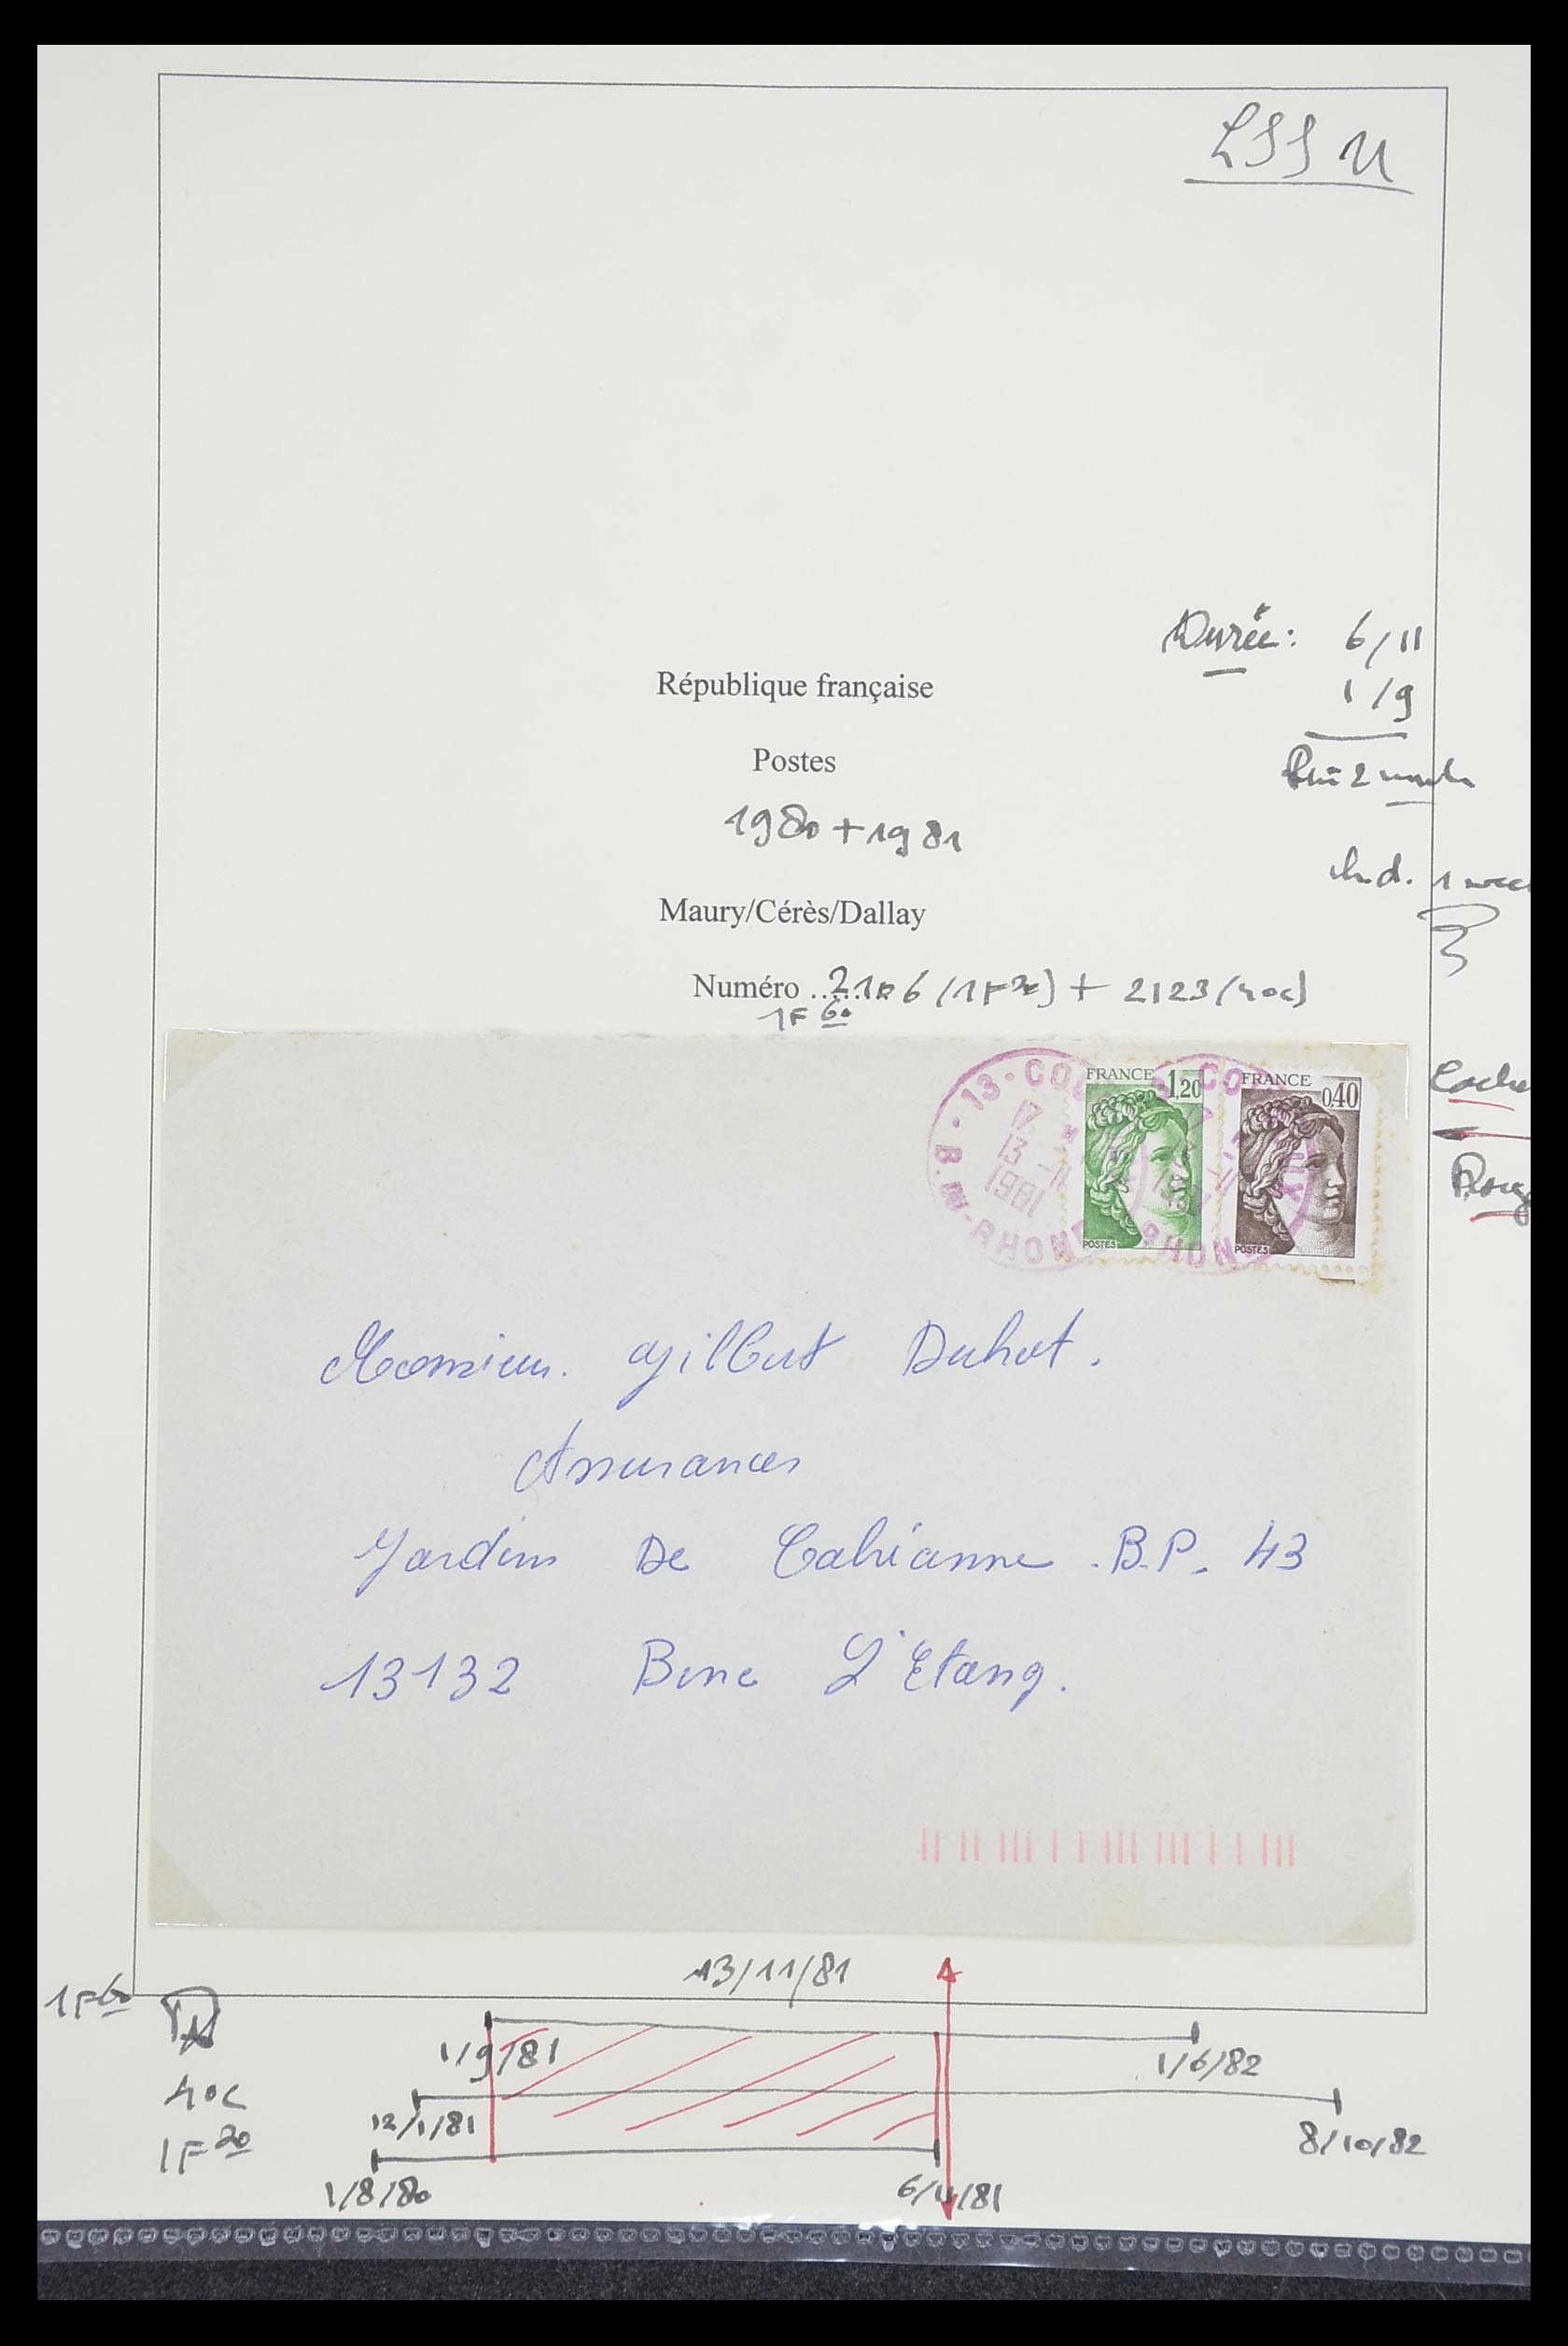 LSS 11
Durée: 6/11
1/9
2
République française
Postes
1980 + 1981
Ind. 1
Maury/Cérès/Dallay
Numéro 2106 (1F20) + 2123 (40c)
1F 60
FRANCE 1,20 FRANCE 0,40
13 - CO
17
13 -11
1981
B. DU-RHONE RHON
POSTES POSTES
Monsieur. Gilbert Duhot.
Assurances
Jardins De Cabrianne . B.P. 43
13132 Berre L'Etang.
13/11/81
1F60
1/9/81 1/6/82
40c
12/1/81 8/10/82
1F20
1/8/80 6/11/81